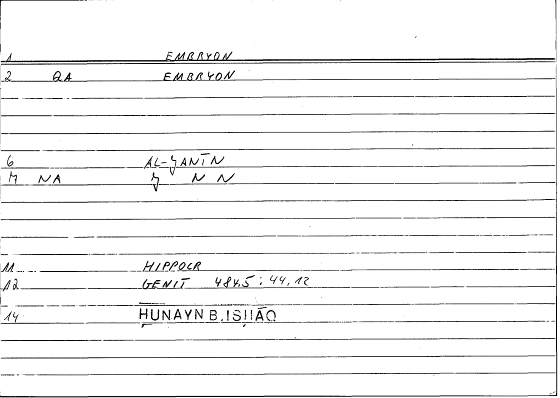 1 EMBRYON
2 QA EMBRYON
6 AL-ǦANĪN
7 NA Ǧ N N
11 HIPPOCR
12 GENIT 484.5 : 44,12
14 ḤUNAYN B. ISḤĀQ